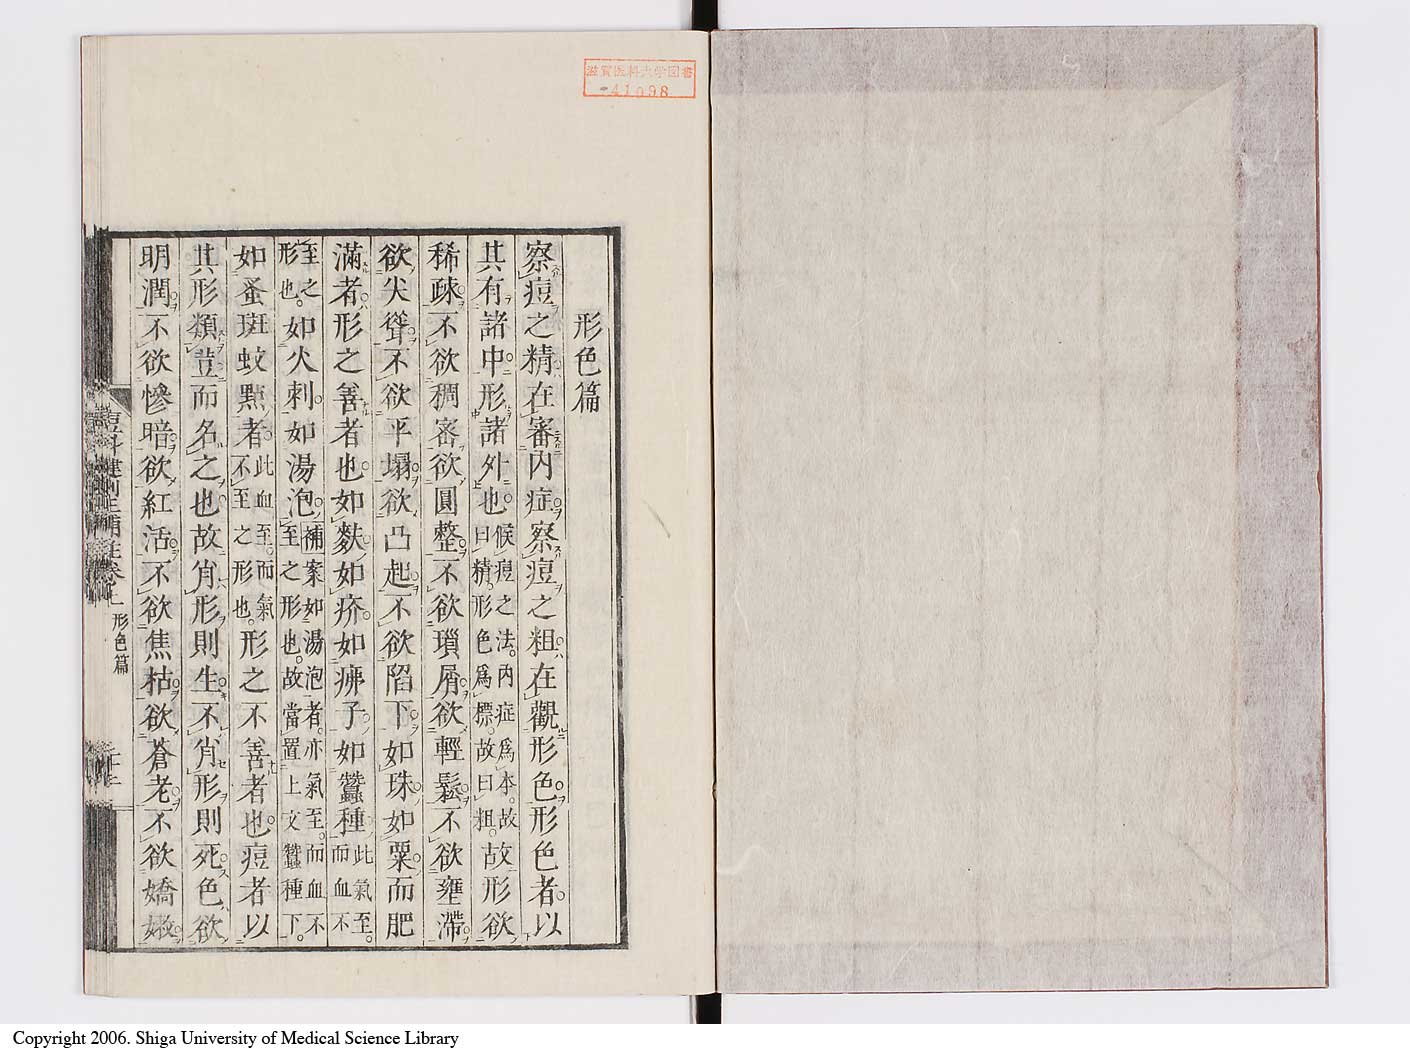 滋賀医科大学図書
41098
形色篇
察痘之精在審內症察痘之粗在觀形色形色者以
其有諸中形諸外也候痘之法內症爲本故曰精形色爲標故曰粗故形欲
稀疎不欲稠密欲圓整不欲瑣屑欲輕鬆不欲壅滯
欲尖聳不欲平塌欲凸起不欲陷下如珠如粟而肥
滿者形之善者也如麩如疥如疿子如蠶種此氣至而血不
至之形也如火刺如湯泡補案如湯泡者亦氣至而血不至之形也故當置上文蠶種下
如蚤斑蚊點者此血至而氣不至之形也形之不善者也痘者以
其形類荳而名之也故肖形則生不肖形則死色欲
明潤不欲慘暗欲紅活不欲焦枯欲蒼老不欲嬌嫩
痘科鍵刪正補註卷七 形色篇
Copyright 2006. Shiga University of Medical Science Library